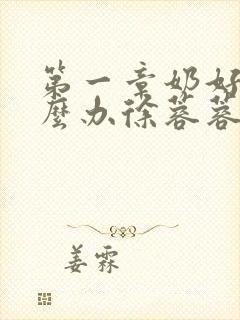 第一章奶好
麼办徐蓉蓉
姜霖